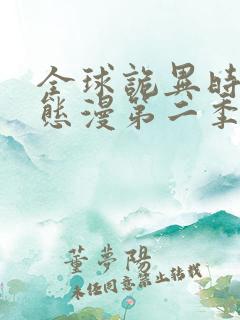 全球詭異時
態漫第二季
董夢陽
未经同意禁止转载